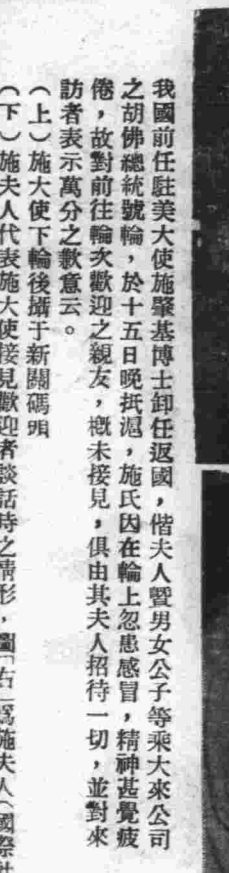 我國前任駐美大使施肇基博士卸任返國，偕夫人暨男女公子等乘大來公司
之胡佛總統號輪，於十五日晚抵滬，施氏因在輪上忽患感冒，精神甚覺疲
倦，故對前往輪次歡迎之親友，概未接見，俱由其夫人招待一切，並對來
訪者表示萬分之歉意云。
（上）施大使下輪後攝于新關碼頭
（下）施夫人代表施大使接見歡迎者談話時之情形，圖「右」爲施夫人（國際社